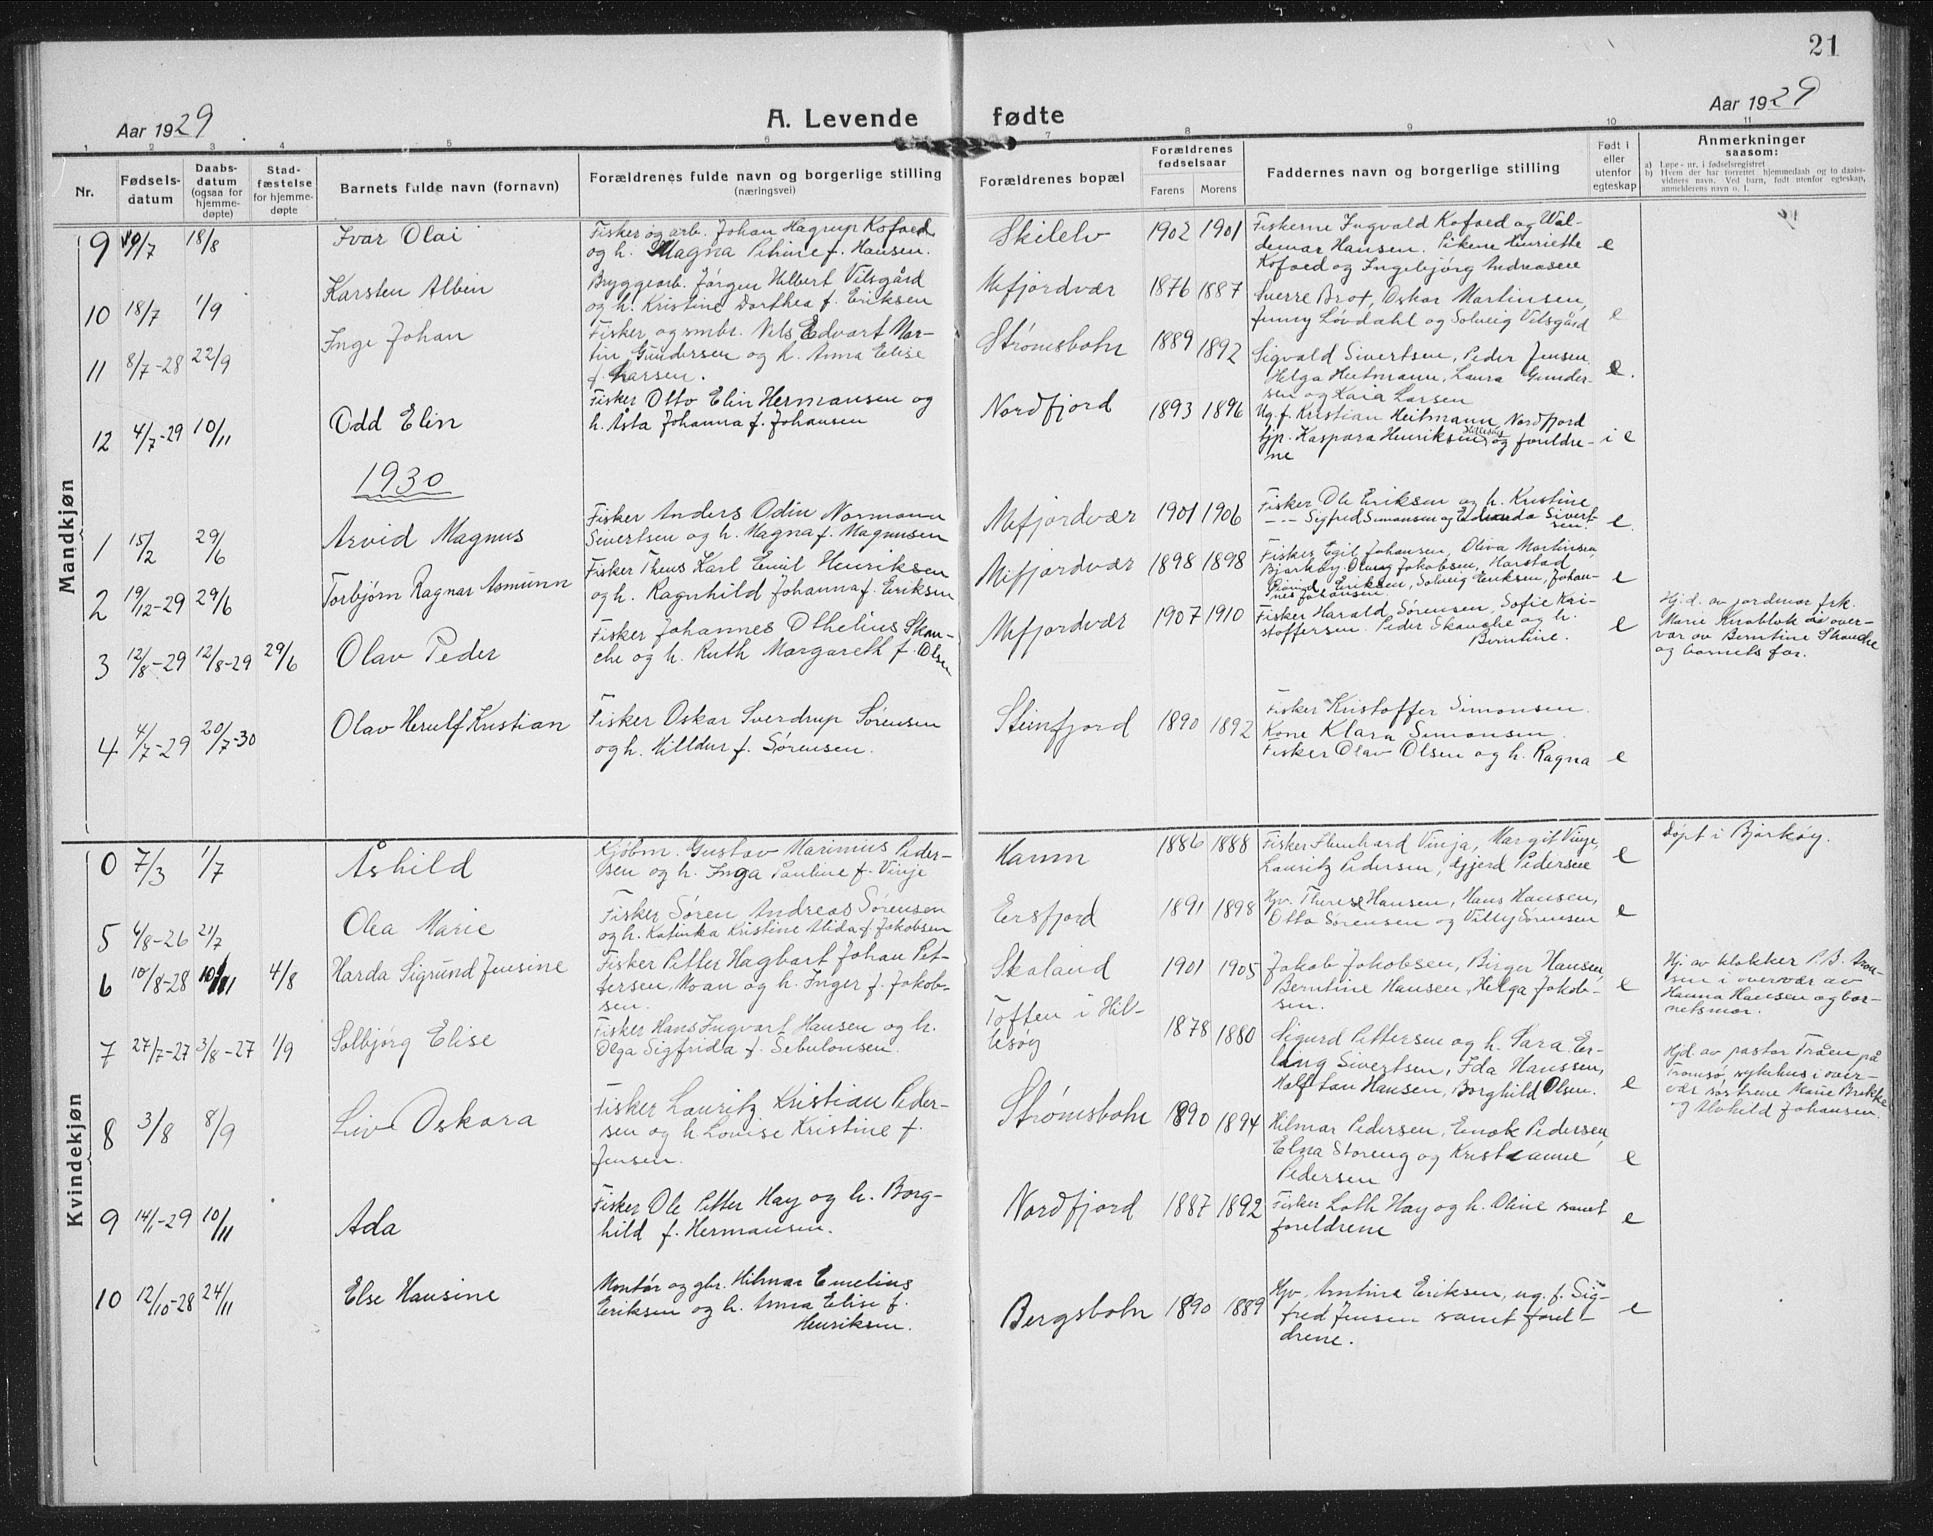 21
Aar 1929
A. Levende fødte
Aar 1929
1 2 3 4 5 6 7 8 9 10 11
Nr.
Fødsels-
datum
Daabs-
datum
(ogsaa for
hjemme-
døpte)
Stad-
fæstelse
for hjemme-
døpte
Barnets fulde navn (fornavn)
Forældrenes fulde navn og borgerlige stilling
(næringsvei)
Forældrenes bopæl
Forældrenes
fødselsaar
Farens Morens
Faddernes navn og borgerlige stilling
Født i
eller
utenfor
egteskap
Anmerkninger
saasom:
a) Løpe-nr. i fødselsregistret
b) Hvem der har forrettet hjemmedaab og to daabs-
vidners navn. Ved barn, født utenfor egteskap,
anmelderens navn o. l.
Mandkjøn
9 10/7 18/8 Ivar Olai
Fisker og arb. Johan Hagrup Kofoed
og h. Magna Petrine f. Hansen.
Skilelv 1902 1901
Fiskerne Ingvald Kofoed og Wal-
demar Hansen. Pikene Henriette
Kofoed og Ingebjørg Andreasen
e
10 18/7 1/9 Karsten Albin
Bryggearb. Jørgen Hilbert Vilsgård
og h. Kristine Dorthea f. Eriksen
Mefjordvær 1876 1887
Sverre Brox, Oskar Martinsen,
Jenny Løvdahl og Solveig Vilsgård
e
11 8/7-28 22/9 Inge Johan
Fisker og smbr. Nils Edvart Mar-
tin Gundersen og h. Anna Elise
f. Larsen.
Strømsbotn 1889 1892
Sigvald Sivertsen, Peder Jensen
Helga Heitmann, Laura Gunder-
sen og Kaia Larsen
e.
12 4/7-29 10/11 Odd Elin
Fisker Otto Elin Hermansen og
h. Åsta Johanna f. Johansen
Nordfjord 1893 1896
Ug. f. Kristian Heitmann Nordfjord
hjp. Kaspara Henriksen og foreldre-
ne
i e
1930
1 15/2 29/6 Arvid Magnus
Fisker Anders Odin Normann
Sivertsen og h. Magna f. Magnusen
Mefjordvær 1901 1906
Fisker Ole Eriksen og h. Kristine
-"- Sigfred Simonsen og Edvarda Sivert-
sen.
e
2 19/12-29 29/6 Torbjørn Ragnar Asmunn
Fisker Theus Karl Emil Henriksen
og h. Ragnhild Johanna f. Eriksen
Mefjordvær 1898 1898
Fisker Egil Johansen, Oliva Martinsen
Bjarkøy. Jakobsen, Harstad
Eriksen, Solveig Eriksen, Johan-
nes Johansen
e
3 12/8-29 12/8-29 29/6 Olav Peder
Fisker Johannes Othelius Skan-
che og h. Ruth Margareth f. Olsen
Mefjordvær 1907 1910
Fisker Harald Sørensen, Sofie Kri-
stoffersen. Peder Skanche og h.
Berntine.
e
Hj.d. av jordmor frk.
Marie Knoblok i over-
vær av Berntine Skanche
og barnets far.
4 4/7-29 20/7-30 Olav Herulf Kristian
Fisker Oskar Sverdrup Sørensen
og h. Hilldur f. Sørensen.
Steinfjord 1890 1892
Fisker Kristoffer Simonsen.
Kone Klara Simonsen
Fisker Olav Olsen og h. Ragna
e
Kvindekjøn
0 7/3 1/7 Åshild
Kjøbm. Gustav Marinius Peder-
sen og h. Inga Pauline f. Vinje
Hamn 1886 1888
Fisker Vinja, Margit Vinje,
Lauritz Pedersen, Gjerd Pedersen
e
Døpt i Bjarkøy.
5 4/8-26 21/7 Olea Marie
Fisker Søren Andreas Sørensen
og h. Katinka Kristine Alida f. Jakobsen
Ersfjord 1891 1898
Hjv. Therese Hansen, Hans Hansen,
Otto Sørensen og Villy Sørensen
e
6 10/8-28 10/11 4/8 Harda Sigrund Jensine
Fisker Petter Hagbart Johan Pet-
tersen, Moan og h. Inger f. Jakob-
sen.
Skaland 1901 1905
Jakob Jakobsen, Birger Hansen,
Berntine Hansen, Helga Jakob-
sen.
e
Hj av klokker P.B. Aron-
sen i overvær av
Hanna Hansen og bar-
netsmor.
7 27/7-27 3/8-27 1/9 Solbjørg Elise
Fisker Hans Ingvart Hansen og h.
Olga Sigfrida f. Sebulonsen.
Toften i Hil-
lesøy 1878 1880
Sigurd Pettersen og h. Sara Er-
ling Sivertsen, Ida Hanssen,
Halftan Hansen, Borghild Olsen.
e
Hjd. av pastor Tråen på
Tromsø sykehus i over-
vær søstrene Marie Brekke
og Alvhild Johansen.
8 3/8 8/9 Liv Oskara
Fisker Lauritz Kristian Peder-
sen og h Lovise Kristine f.
Jensen.
Strømsbotn 1890 1894
Hilmar Pedersen, Enok Pedersen,
Elna Storeng og Kristianne
Pedersen
e
9 14/1-29 10/11 Ada
Fisker Ole Petter Hay og h. Borg-
hild f. Hermansen.
Nordfjord 1887 1892
Fisker Loth Hay og h. Oline samt
foreldrene
e
10 12/10-28 24/11 Else Hansine
Montør og gbr. Hilmar Emelius
Eriksen og h. Anna Elise f.
Henriksen.
Bergsbotn 1890 1889
Hjv. Antina Eriksen, ug. f. Sig-
fred Jensen samt forel-
drene.
e